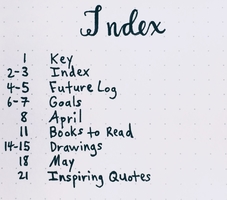 Index
1 Key
2-3 Index
4-5 Future Log
6-7 Goals
8 April
11 Books to Read
14-15 Drawings
18 May
21 Inspiring Quotes